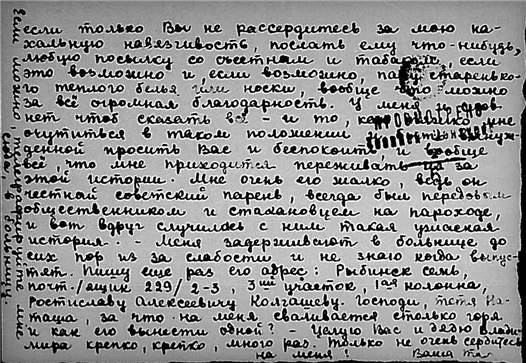 если только Вы не рассердитесь за мою на-
хальную навязчивость, послать ему что-нибудь,
любую посылку со съестным и табаком, если
это возможно и, если возможно, пару старенько-
го теплого белья или носки, вообще что можно
за всё огромная благодарность. У меня
нет чтоб сказать всё - и то,
очутиться в таком положении
денной просить Вас и беспокоить, и вообще
всё, что мне приходится переживать из за
этой истории. Мне очень его жалко, ведь он
честный советский парень, всегда был передовым
общественником и стахановцем на пароходе,
и вот вдруг случилась с ним такая ужасная
история. - Меня задерживают в больнице до
сих пор из за слабости и не знаю когда выпус-
тят. Пишу еще раз его адрес: Рыбинск семь,
почт./ящик 229/2-3, 3ий участок, 1ая колонна,
Ростиславу Алексеевичу Колгашеву. Господи, тетя На-
таша, за что на меня сваливается столько горя
и как его вынести одной? - Целую Вас и дядю Влади-
мира крепко, крепко, много раз. Только не очень сердитесь
на меня Ваша
Если можно, телеграфируйте мне
сюда, в больницу.